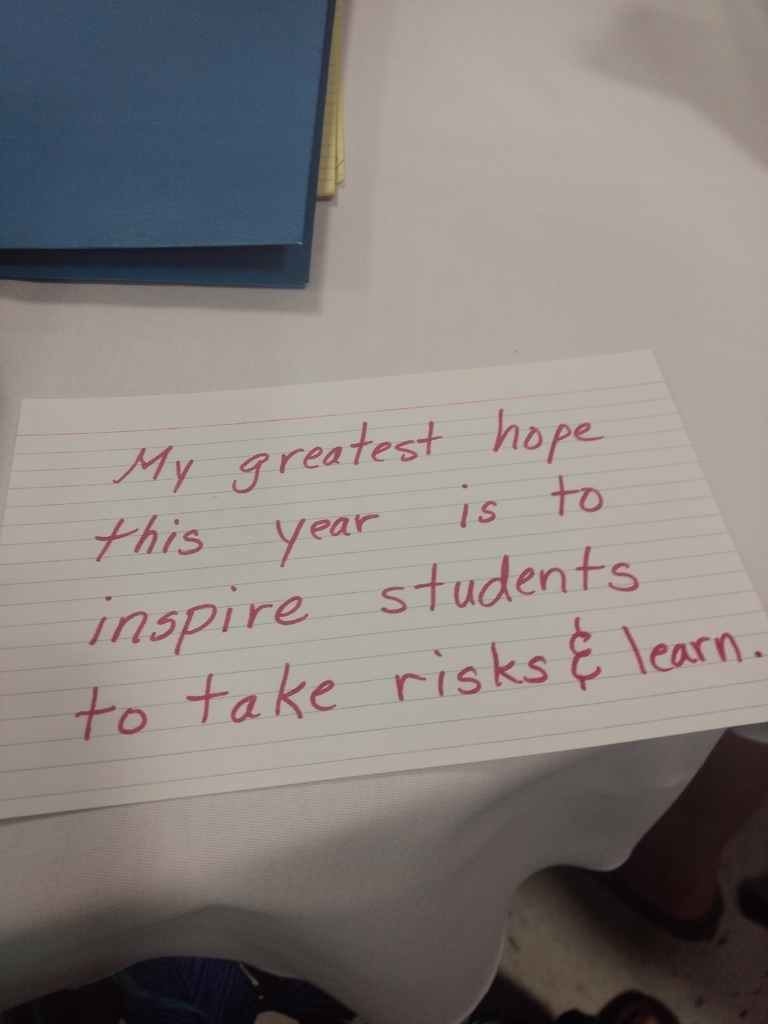 My greatest hope
this year is to
inspire students
to take risks & learn.